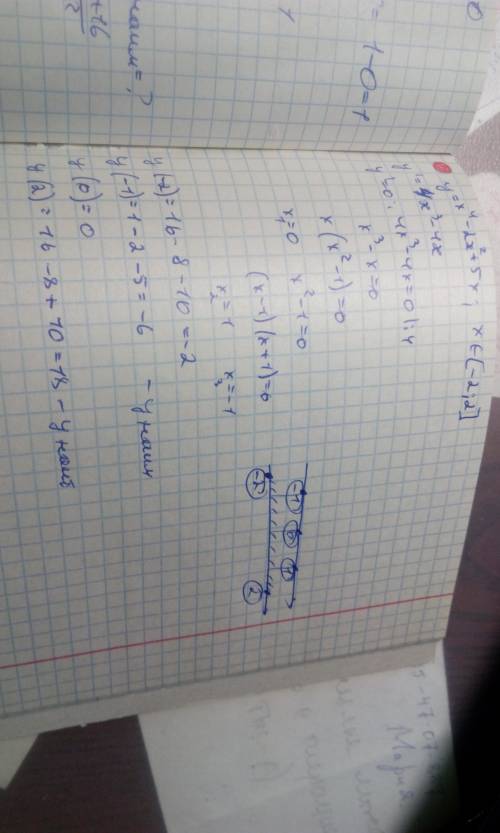 y = x⁴ - 2x² + 5x; x ∈ [-2; 2]
y' = 4x³ - 4x
y' = 0: 4x³ - 4x = 0 |: 4
x³ - x = 0
x (x² - 1) = 0
x₁ = 0 x² - 1 = 0
(x - 1)(x + 1) = 0
x₂ = 1 x₃ = -1
-1 0 1
-2 2
y(-2) = 16 - 8 - 10 = -2
y(-1) = 1 - 2 - 5 = -6 - y наим
y(0) = 0
y(2) = 16 - 8 + 10 = 18 - y наиб
= 1-0=1
1
наим = ?
+16
Мария